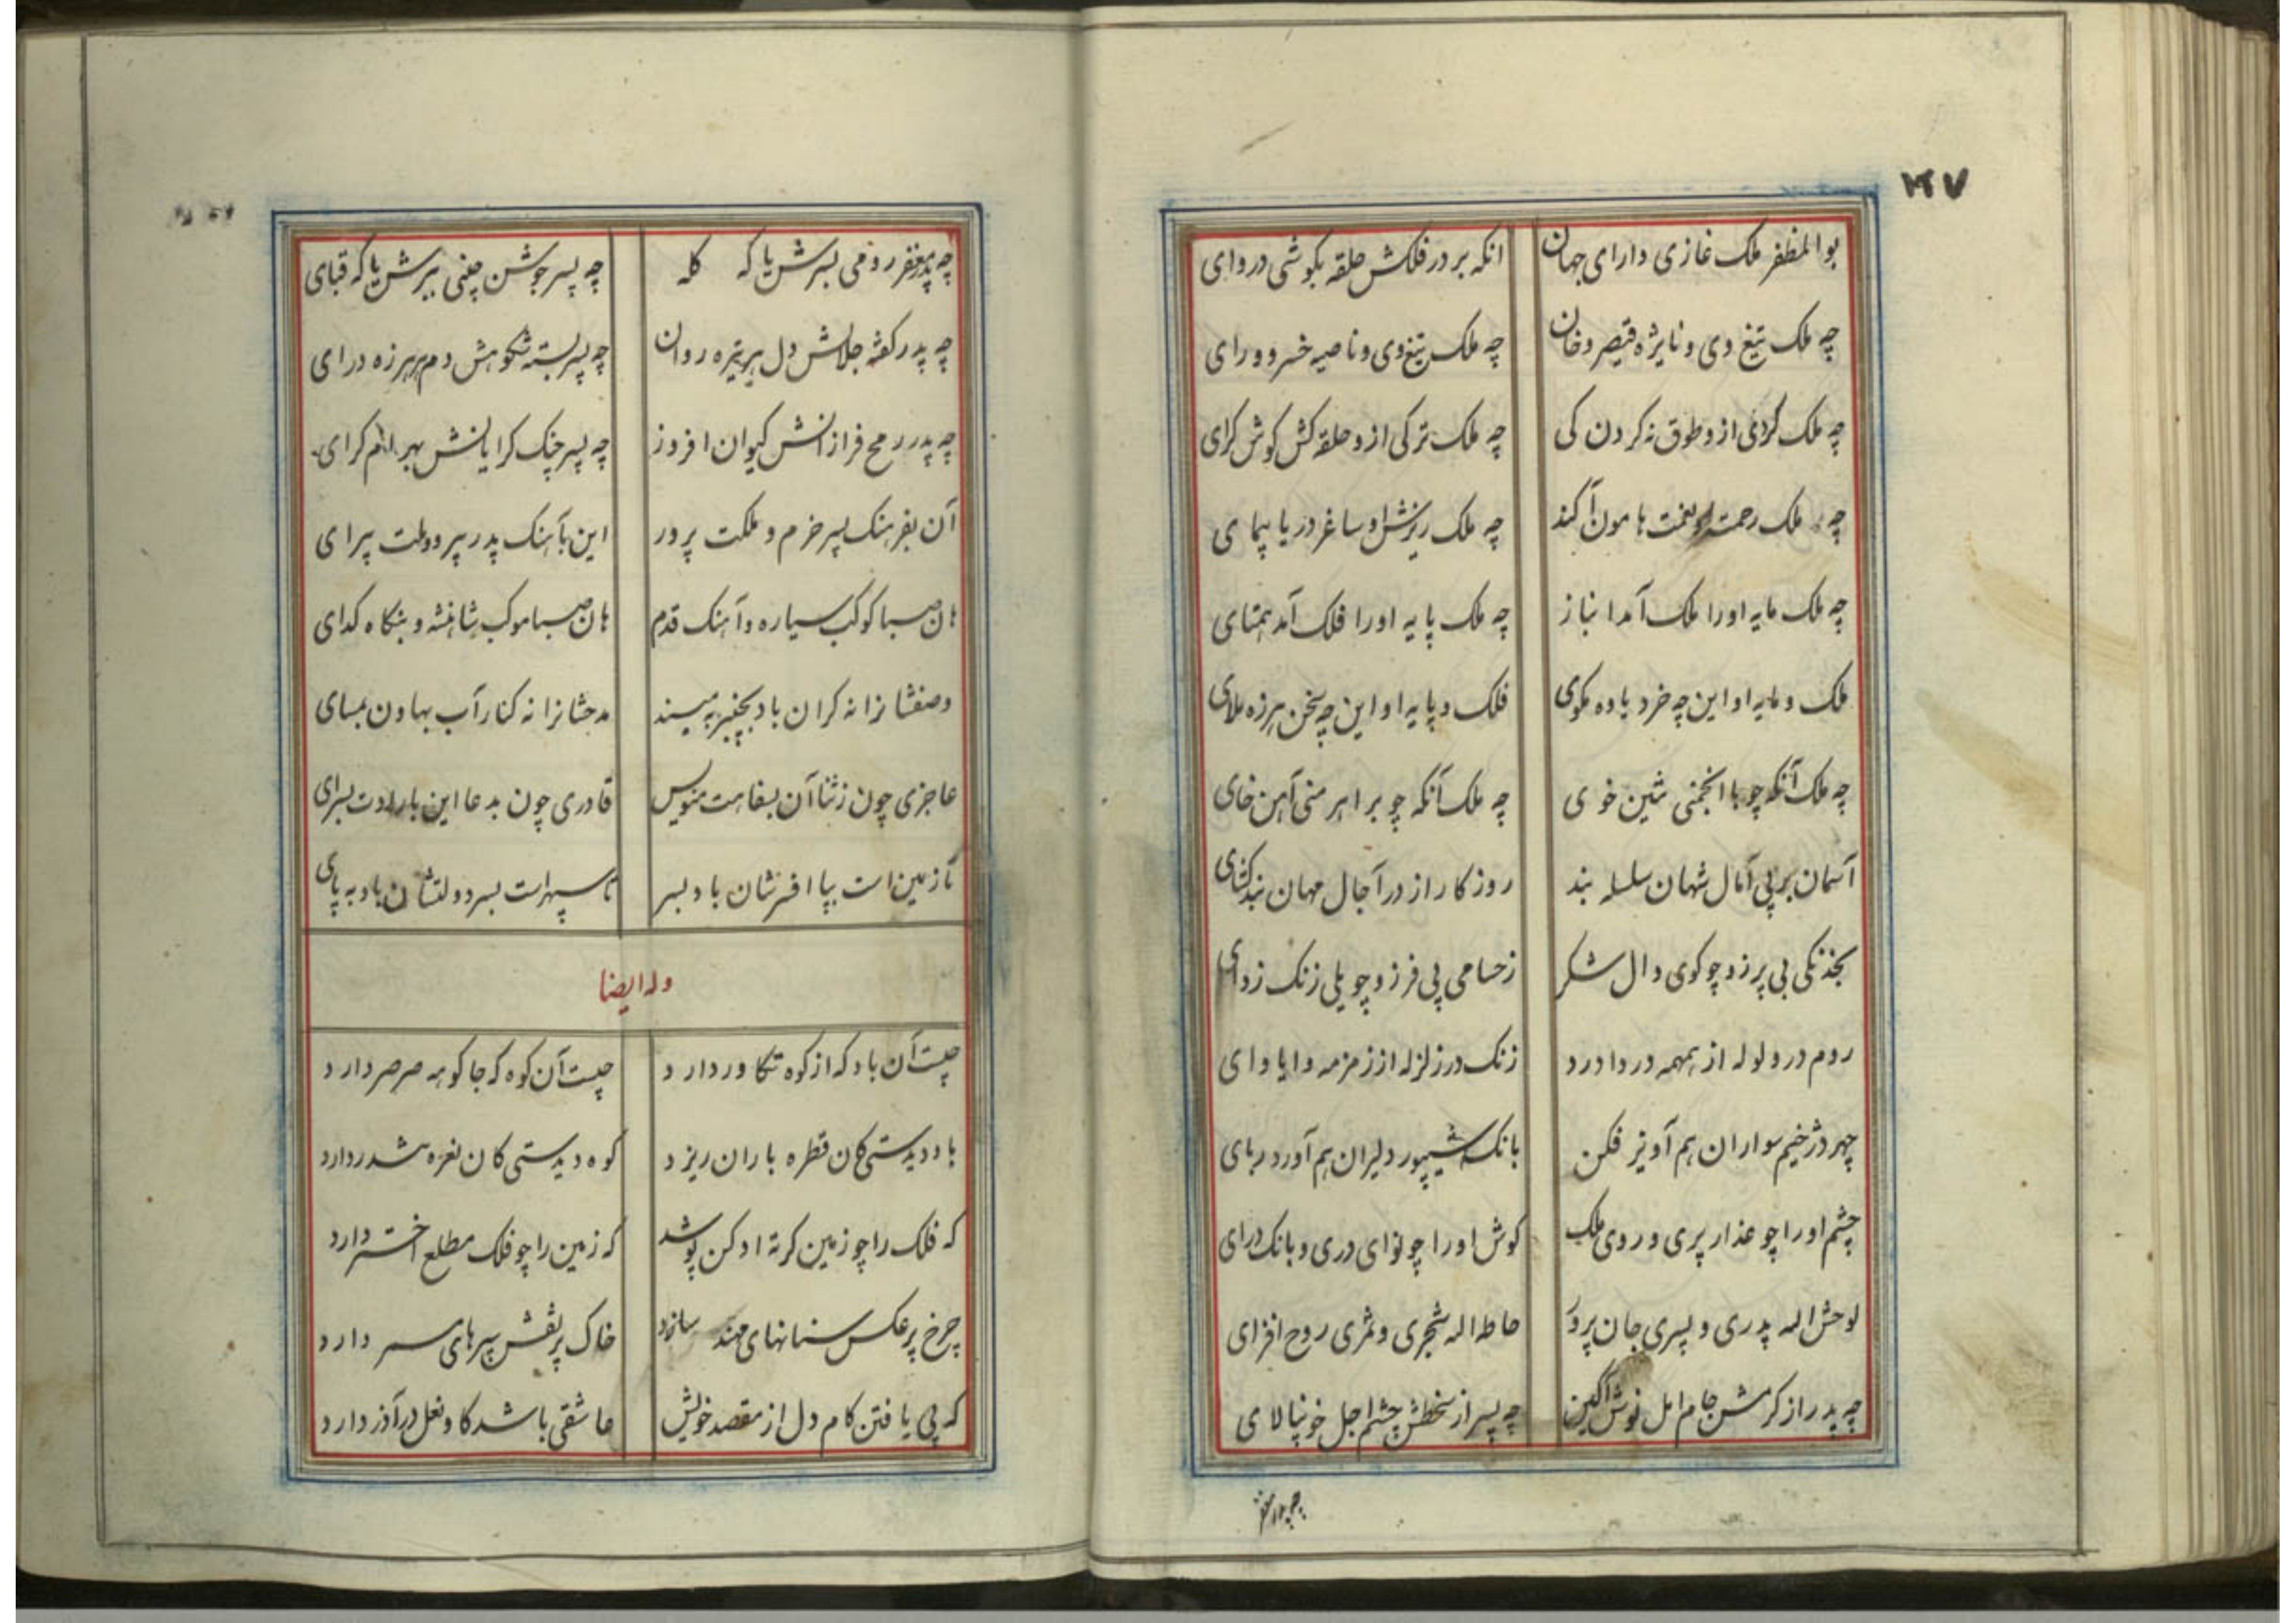 ۲۴۷
بوالمظفر ملک غازی دارای جهان انکه بر در فلکش حلقه بکوشی دروای
چه ملک تیغ وی و نایژه قیصر و خان چه ملک تیغ وی و ناصیه خسرو و رای
چه ملک کردنی از و طوق نه کردن کی چه ملک ترکی از و حلقه کش کوش کرای
چه ملک رحمت او نعمت هامون آکند چه ملک ریزش او ساغر دریا پیمای
چه ملک مایه اورا ملک آمد انباز چه ملک پایه اورا فلک آمد همتای
ملک و مایه او این چه خرد یاوه مکوی فلک و پایه او این چه سخن هرزه ملای
چه ملک آنکه چو با انجمنی شین خوی چه ملک آنکه چو بر اهرمنی آهن خای
آسمان بر پی آمال شهان سلسله بند روزکار از در آجال مهان بند کشای
بخدنکی بی پر زو چو کوی دال شکر ز حسامی پی فر زو چو یلی زنک زدای
روم در ولوله از همهمه دردا درد زنک در زلزله از زمزمه وایا وای
چهر دژخیم سواران هم آویز فکن بانک شیپور دلیران هم آورد ربای
چشم اورا چو عذار پری و روی ملک کوش اورا چو نوای دری و بانک درای
لوحش اله پدری و پسری جان پرور حاطه اله شجری و ثمری روح افزای
چه پدر از کرمش جام امل نوش آکین چه پسر از سخطش چشم اجل خونپالای
چه پدر مغفر
چه پدر مغفر رومی بسرش یا که کله چه پسر جوشن چینی ببرش یا که قبای
چه پدر کفته جلالش دل هر تیره روان چه پسر بسته شکوهش دم هر هرزه درای
چه پدر رمح فرازانش کیوان افروز چه پسر چنک کرایانش بهرام کرای
آن بفرهنک پسر خرم و مملکت پرور این بآهنک پدر پیر و دولت پیرای
هان صبا کوکب سیاره و آهنک قدم هان صبا موکب شاهنشه و بنکاه کدای
وصفشانرا نه کران باد بچنبر مپسند مدحشانرا نه کنار آب بهاون بمسای
عاجزی چون ز ثنا آن بسفاهت منویس قادری چون بدعا این بارادت بسرای
تا زمین است بپا افسرشان باد بسر تا سپهر است بسر دولتشان باد به پای
وله ایضا
چیست آن باد که از کوه تکاور دارد چیست آن کوه که جا کوهه صرصر دارد
باد دیدستی کان قطره باران ریزد کوه دیدستی کان نعره تندر دارد
که فلک را چو زمین کرته ادکن پوشد که زمین را چو فلک مطلع اختر دارد
چرخ پر عکس سنانهای مهند سازد خاک پر نقش سپرهای سمر دارد
که پی یافتن کام دل از مقصد خویش عاشقی باشد کاو نعل در آذر دارد